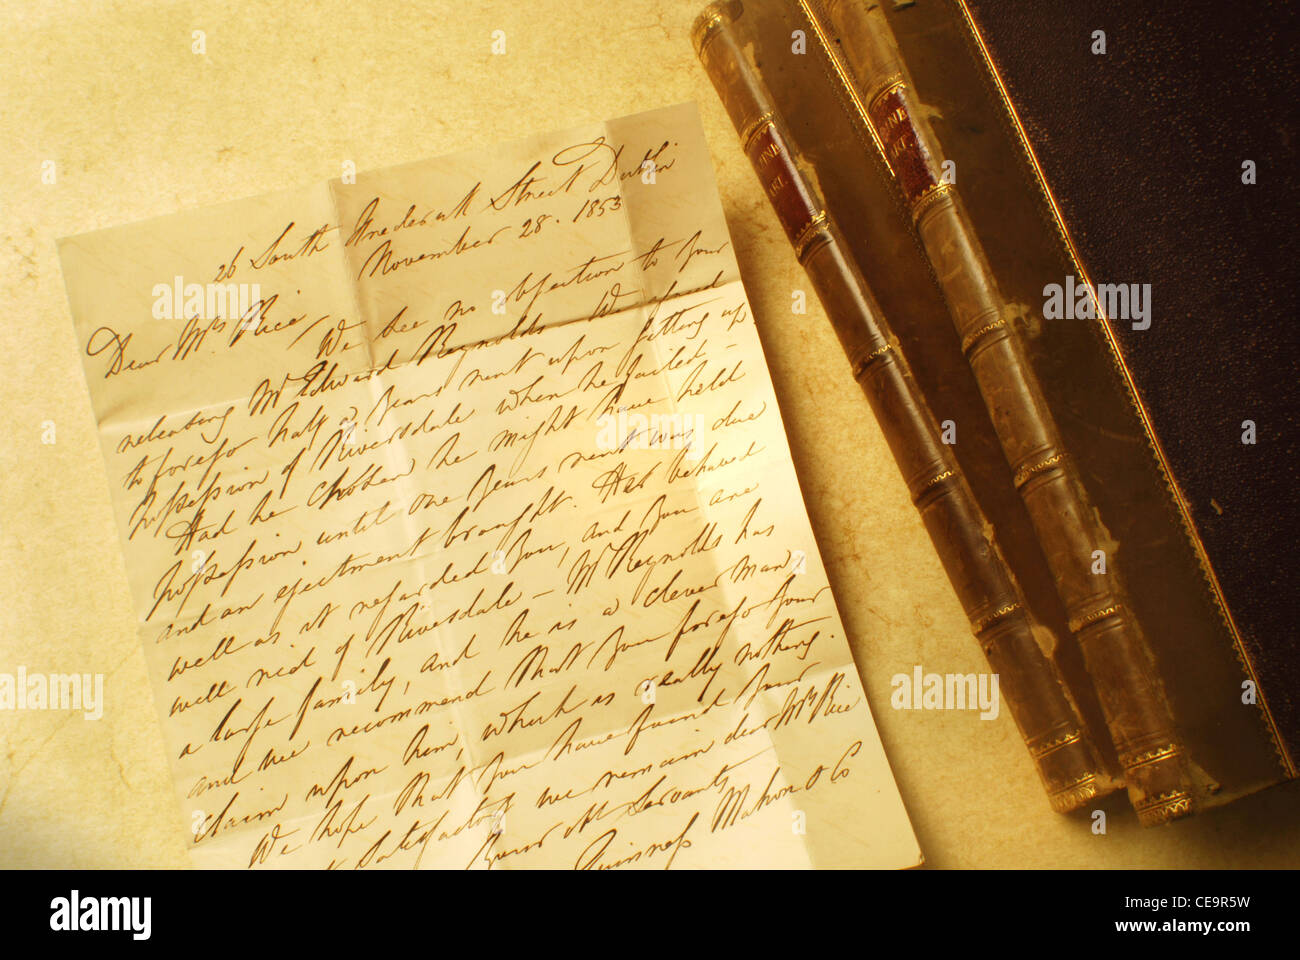 26 South Frederick Street Dublin
November 28. 1853
Dear Mrs Rice,
We see no objection to your
releasing Mr Edward Reynolds. We
to forego half a years rent upon getting up
possession of Riversdale when he failed –
Had he chosen he might have held
possession until one years rent was due
and an ejectment brought. Has behaved
well as it regarded you, and you are
well rid of Riversdale – Mr Reynolds has
a large family, and he is a clever man,
and we recommend that you forego your
claim upon him, which is really nothing.
We hope that you have found your
satisfactory we remain dear Mrs Rice
Your Ob Servants
Guinness Mahon & Co
FINE
ART
FINE
ART
alamy
Image ID: CE9R5W
www.alamy.com